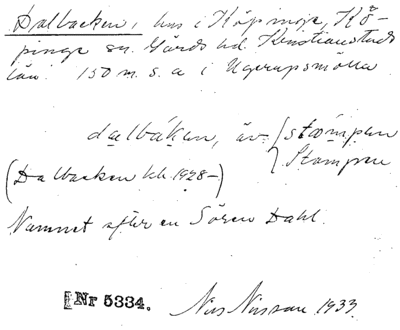 Dalbacken, hus i Köpinge, Kö-
pinge sn. Gärds hd. Kristianstads
län. 150 m. s. a i Ugerupsmölla
dalbákan, äv. stämpan
Stampen
(Dalbacken kk 1928-)
Namnet efter en Sören Dahl.
Nr 5334.
Nils Nilsson 1933.